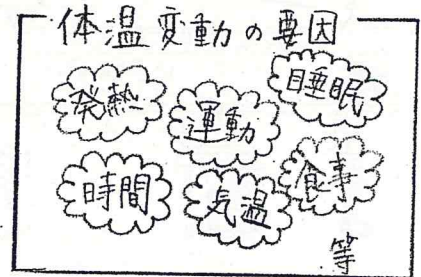 体温変動の要因
発熱
運動
睡眠
時間
気温
食事
等